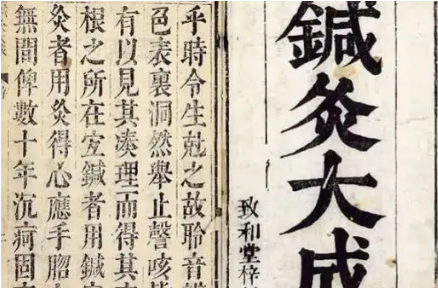 鍼灸大成
致和堂梓
乎時令生尅之故聆音
色表裏洞然舉止謦咳
有以見其凑理而得其
根之所在宜鍼者用鍼
灸者用灸得心應手
無間俾數十年沉痾固